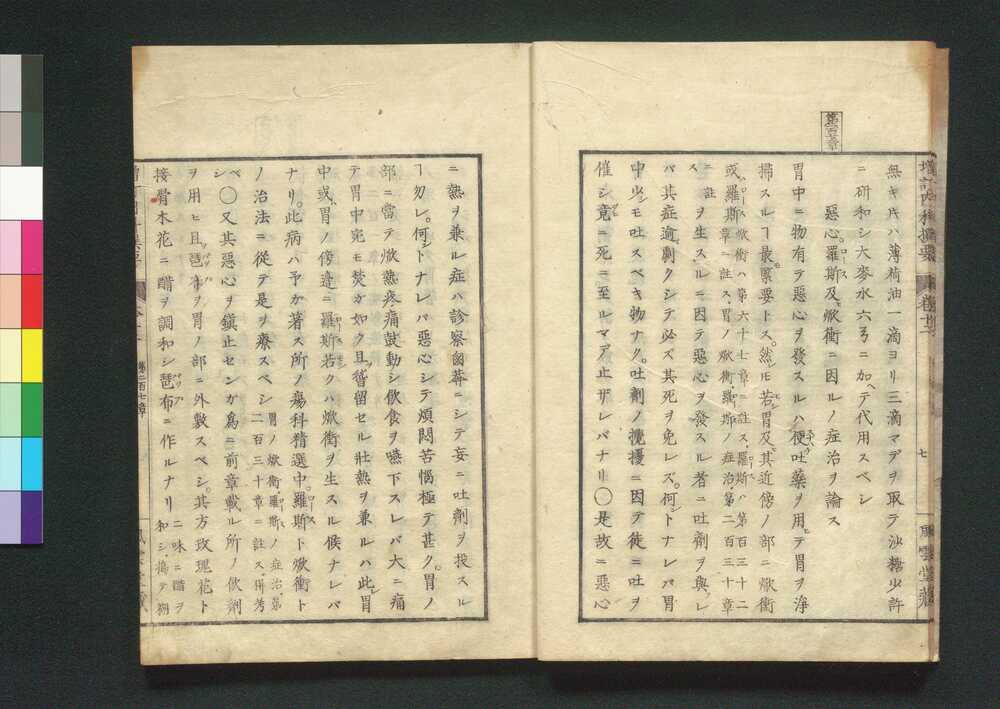 増訂内科撰要
巻十二
七
風雲堂蔵
無キ片ハ薄荷油一滴ヨリ三滴マデヲ取テ沙糖少許
ニ研和シ大麥水六弓ニ加ヘテ代用スベシ
惡心羅斯及焮衝ニ因ルノ症治ヲ論ス
胃中ニ物有テ惡心ヲ發スルハ便吐藥ヲ用テ胃ヲ淨
掃スルヿ最緊要トス。然レ𪜈若胃及其近傍ノ部ニ焮衝
或ハ羅斯
焮衝ハ第六十七章ニ註ス、羅斯ハ第百三十二
章ニ註ス、胃ノ焮衝、羅斯ノ症治第二百三十章
ニ註
ヲ生スルニ因テ惡心ヲ發スル者ニ吐劑ヲ與レ
バ其症逾劇クシテ必ズ其死ヲ免レズ。何トナレバ胃
中少モ吐スベキ物ナク。吐劑ノ攪擾ニ因テ徒ニ吐ヲ
催シ竟ニ死ニ至ルマデ止ザレバナリ〇是故ニ惡心
ニ熱ヲ兼ル症ハ診察鹵莽ニシテ妄ニ吐劑ヲ投スル
ヿ勿レ。何トナレバ惡心シテ煩悶苦惱極テ甚ク。胃ノ
部ニ當テ焮熱疼痛鼓動シ飲食ヲ嚥下スレバ大ニ痛
テ胃中宛モ焚カ如ク且稽留セル壯熱ヲ兼ルハ此胃
中或ハ胃ノ傍邉ニ羅斯若クハ焮衝ヲ生スル候ナレバ
ナリ。此病ハ予カ著ス所ノ瘍科精選中羅斯ト焮衝ト
ノ治法ニ從テ是ヲ療スベシ
胃ノ焮衝羅斯ノ症治、第
二百三十章ニ註ス、併考
ベシ
〇又其惡心ヲ鎮止センカ爲ニ前章載ル所ノ飲劑
ヲ用ヒ且琶布ヲ胃ノ部ニ外敷スベシ。其方玫瑰花ト
接骨木花ニ醋ヲ調和シ琶布ニ作ルナリ
二味ニ醋ヲ
和シ搗テ
第二百七章